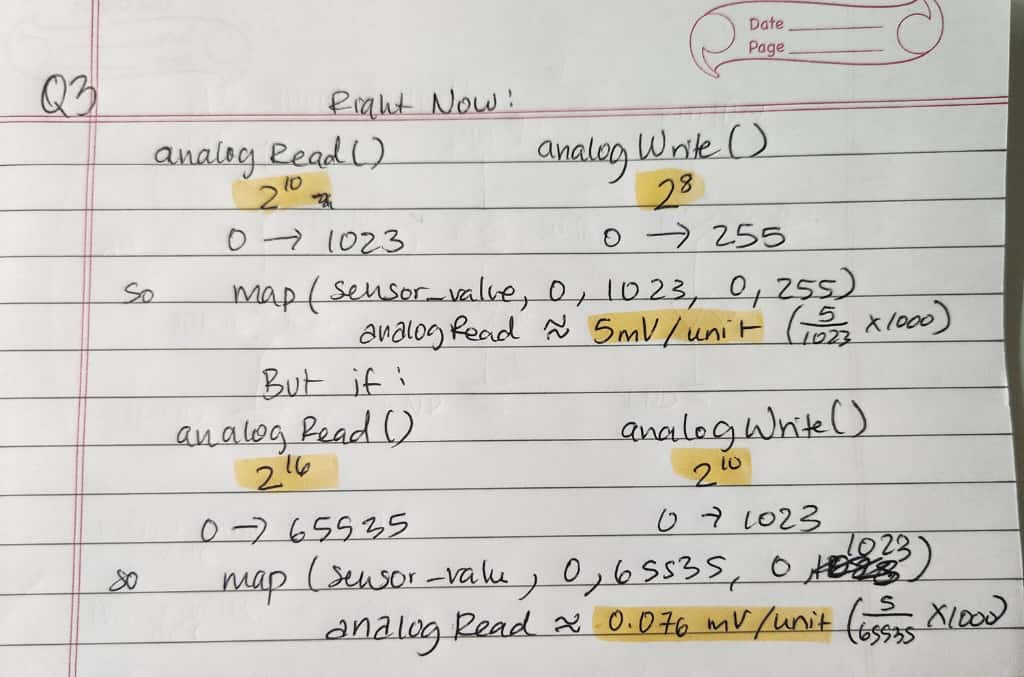 Date
Page
Q3
Right Now:
analogRead() analogWrite()
2^10 2^8
0 → 1023 0 → 255
so map(sensor_value, 0, 1023, 0, 255)
analogRead ≈ 5mV/unit (5/1023 x1000)
But if:
analogRead() analogWrite()
2^16 2^10
0 → 65535 0 → 1023
so map (sensor-value, 0, 65535, 0, 1023)
analogRead ≈ 0.076 mV/unit (5/65535 x1000)